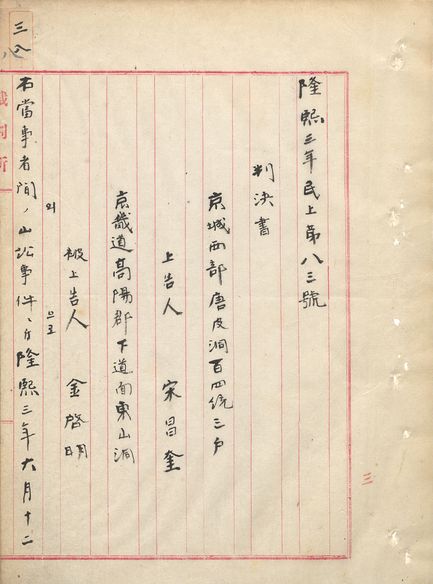 隆熙三年民上第八三號
判決書
京城西部唐皮洞百四統三戶
上告人 宋昌奎
京畿道高陽郡下道面東山洞
被上告人 金啓明
右當事者間ノ山訟事件ニ付隆熙三年六月十二
三八
三